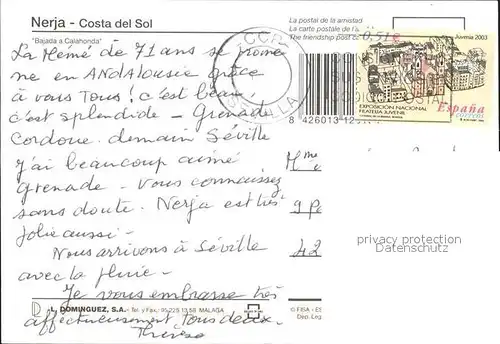 Nerja - Costa del Sol
"Bajada a Calahonda"
La postal de la amistad
La carte postale de l'a
The friendship post ca
La Mémé de 71 ans se promè
ne en ANDALousie grâce
à vous Tous! c'est beau,
c'est splendide - Grenade
Cordoue. demain Séville
J'ai beaucoup aimé
Grenade - Vous connaissez
sans doute. Nerja est très
jolie aussi -
Nous arrivons à Séville
avec la pluie -
Je vous embrasse très
affectueusement Tous deux.
Thérèse
L. DOMINGUEZ, S.A.
MALAGA
© FISA - ES
Dep. Leg.
8 426013 12
0,51€
Juvenia 2003
EXPOSICIÓN NACIONAL
FILATELIA JUVENIL
España
correos
CCP
SEVILLA
POSTAL
Mme
9 
42
privacy protection
Datenschutz